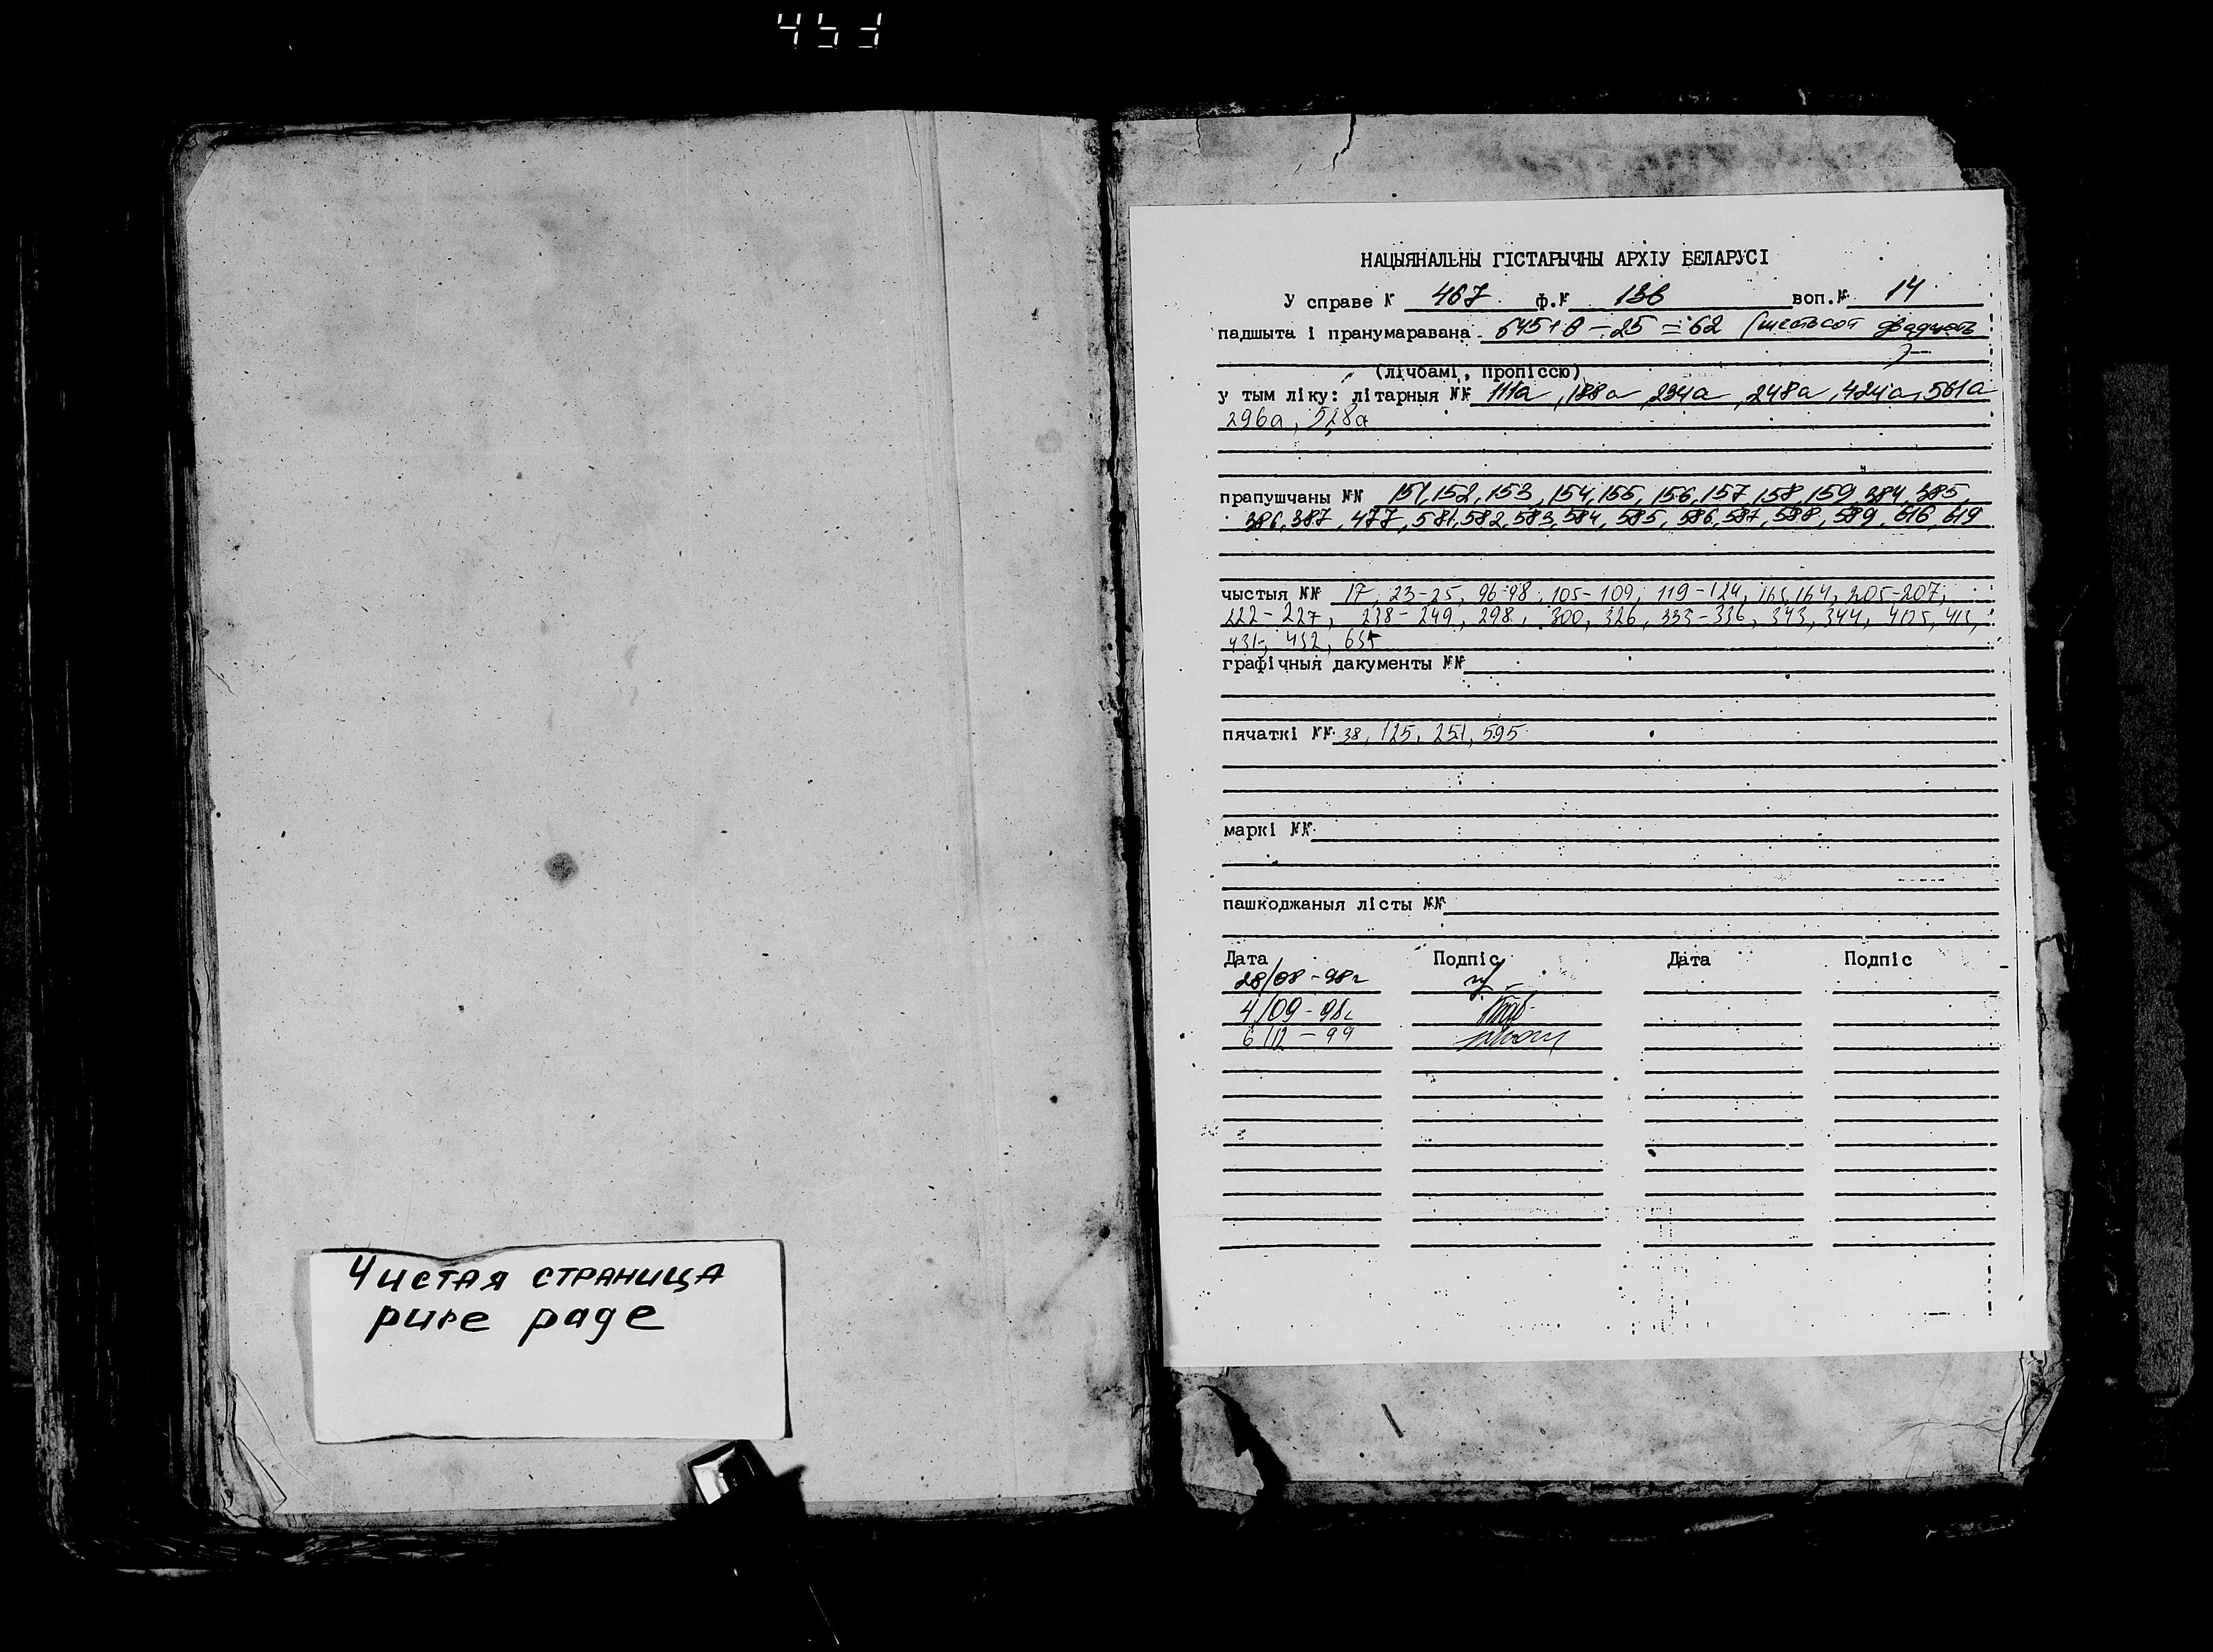 Чистая страница
pure page
НАЦЫЯНАЛЬНЫ ГІСТАРЫЧНЫ АРХІУ БЕЛАРУСІ
У справе № 467 ф.№ 136 воп.№ 14
падшыта і пранумаравана 645+8-25=62 (шестьсот двадцать
(лічбамі, пропіссю)
у тым ліку: літарныя №№ 111а, 188а, 234а, 248а, 424а, 561а
296а, 528а
прапушчаны №№ 151, 152, 153, 154, 155, 156, 157, 158, 159, 384, 385,
386, 387, 477, 581, 582, 583, 584, 585, 586, 587, 588, 589, 616, 619
чыстыя №№ 17, 23-25, 96-98, 105-109, 119-124, 163, 164, 205-207,
222-227, 238-249, 298, 300, 326, 333-336, 343, 344, 405, 413,
431, 432, 635
графічныя дакументы №№
пячаткі №№ 38, 125, 251, 595
маркі №№
пашкоджаныя лісты №№
Дата Подпіс Дата Подпіс
28/08-98г
4/09-98г
6/12-99